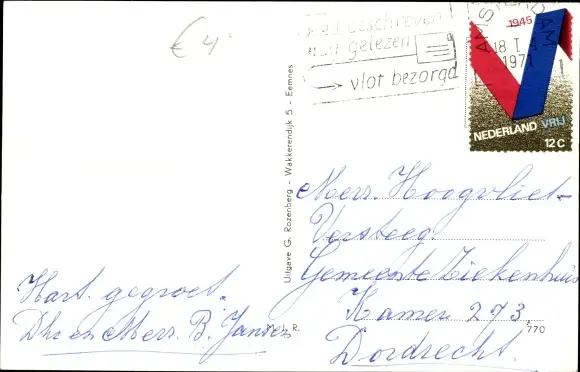 € 4
goed geschreven
snel gelezen
vlot bezorgd
AMSTERDAM
18 I
1971
1945
NEDERLAND VRIJ
12 C
Uitgave G. Rozenberg - Wakkerendijk 5 - Eemnes
Mevr. Hoogvliet-
Versteeg.
Gemeente Ziekenhuis
Kamer 273
Dordrecht.
Hart. gegroet.
Dhr en Mevr. B. Jansen
L. R.
770